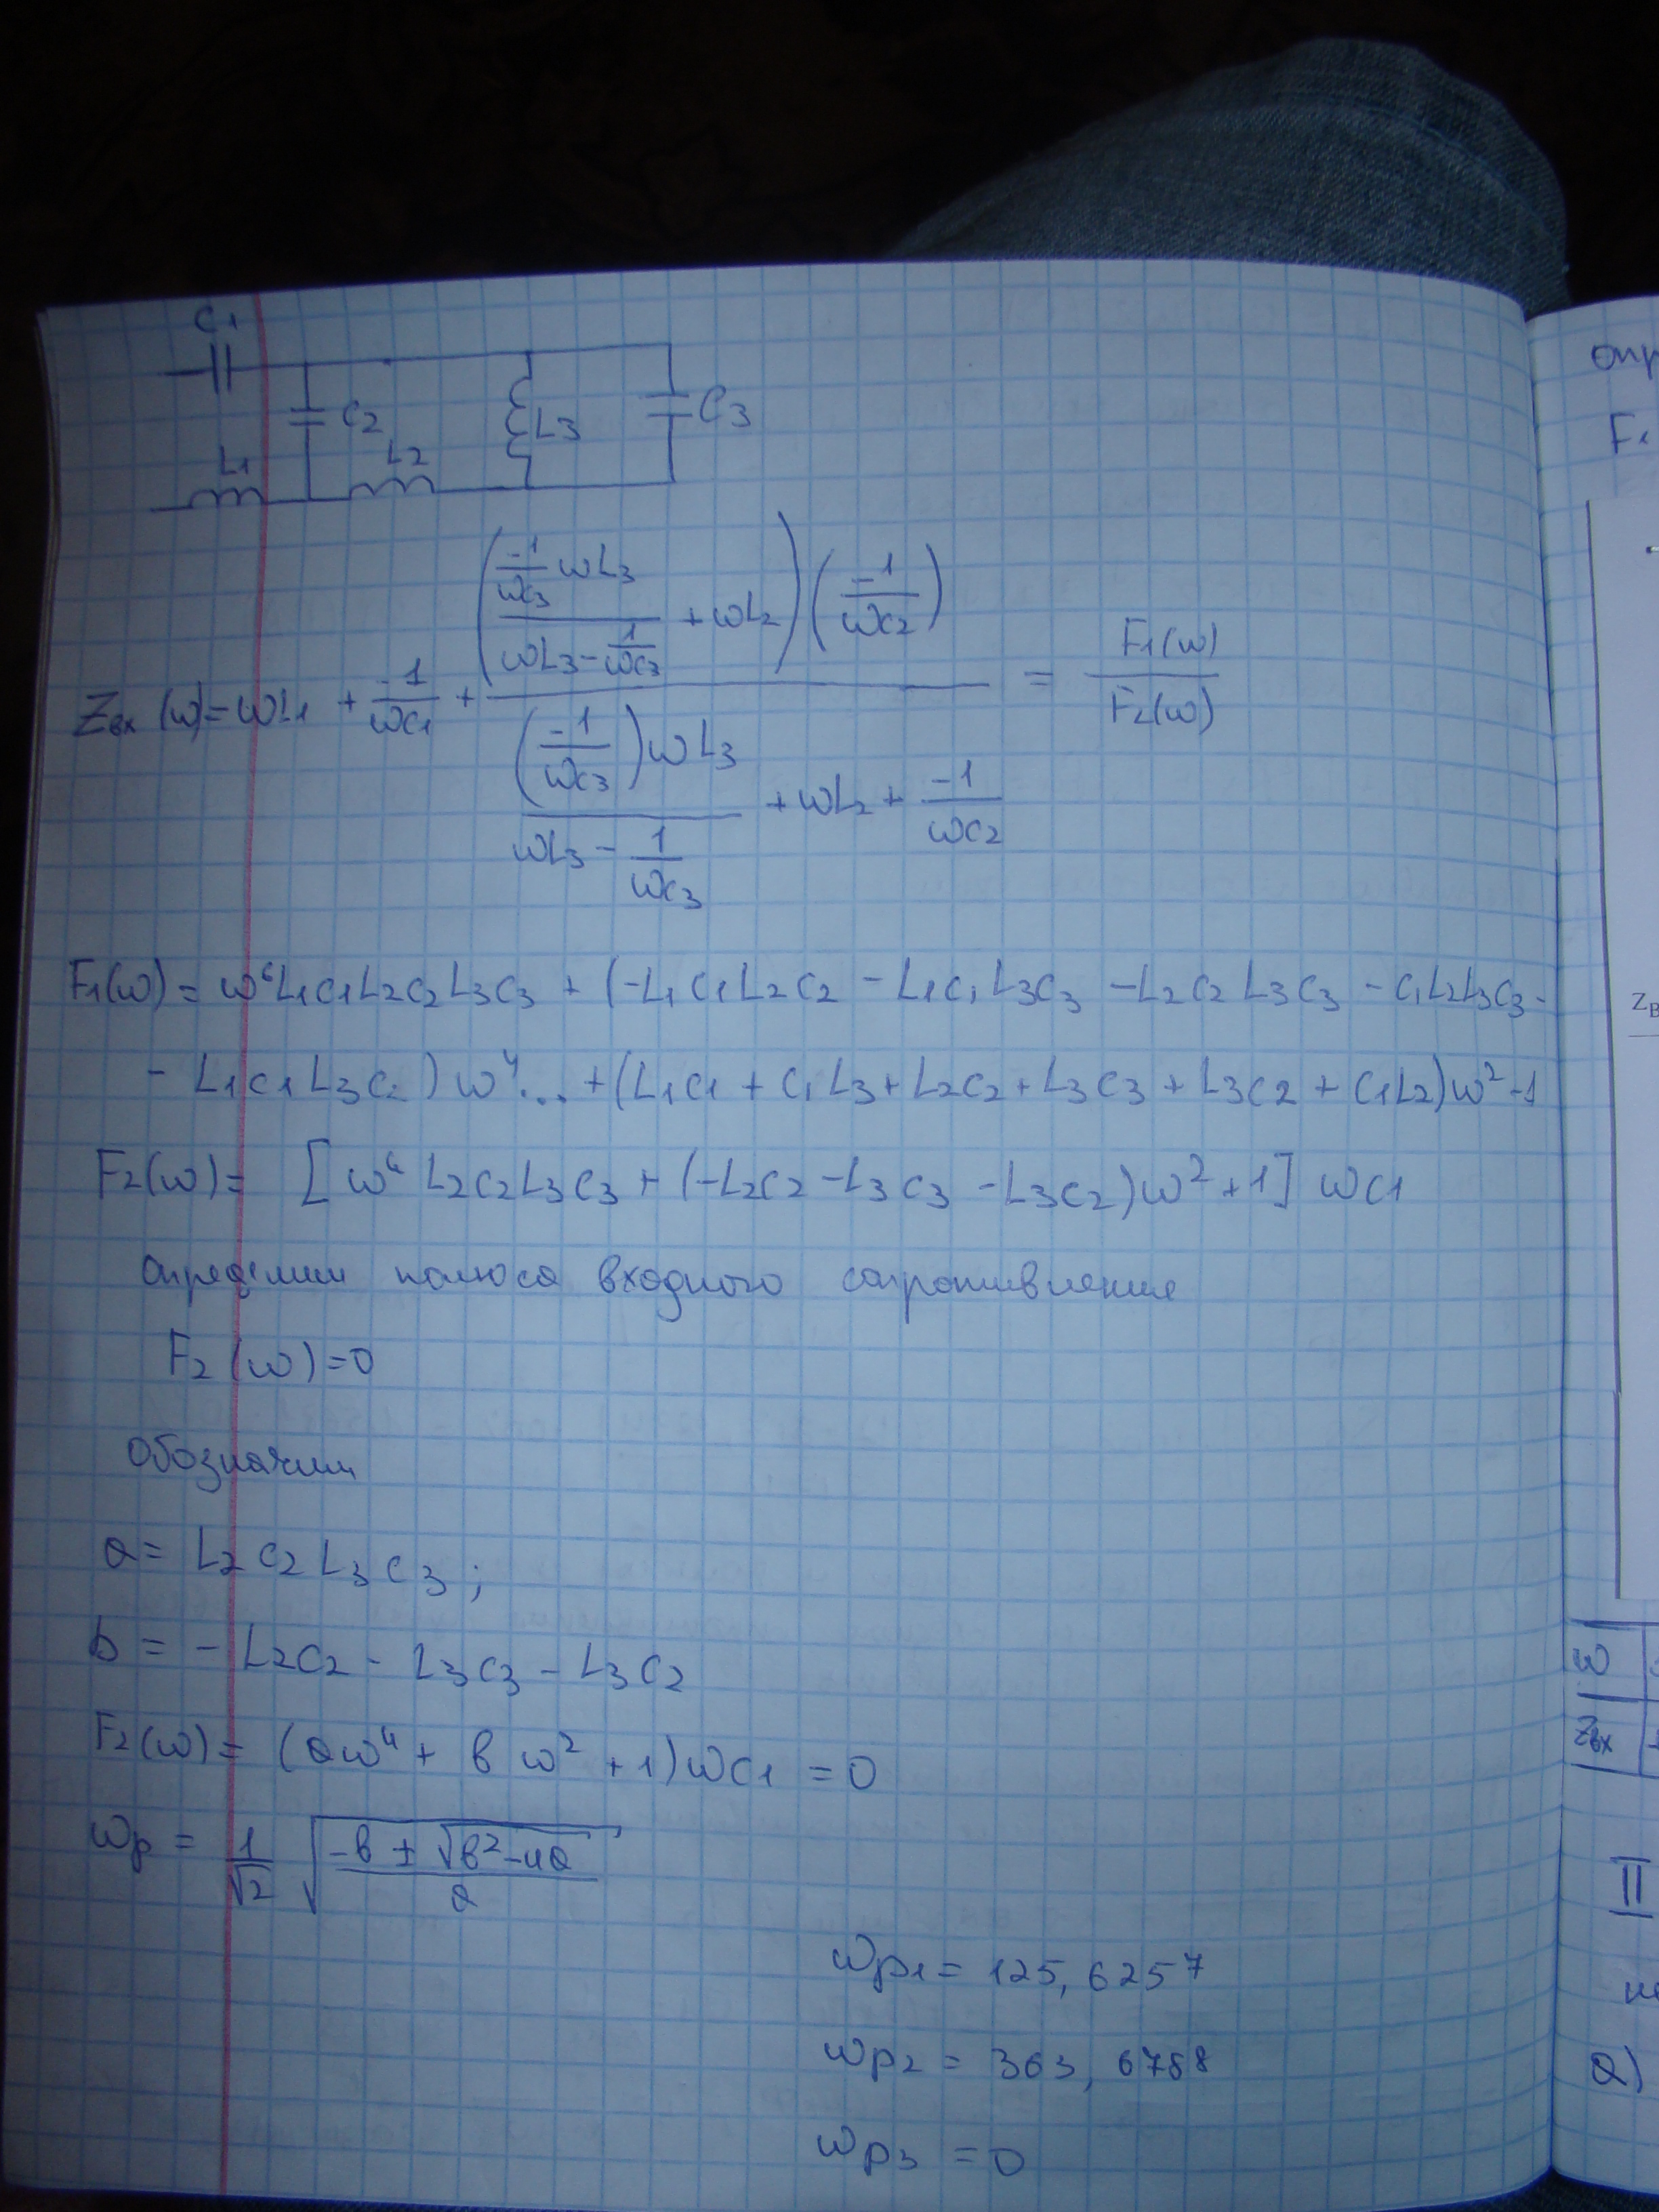 C1
C2
L3
C3
L1
L2
Zвх (ω) = ωL1 + \frac{-1}{ωC1} + \frac{(\frac{\frac{-1}{ωC3} ωL3}{ωL3 - \frac{1}{ωC3}} + ωL2)(\frac{-1}{ωC2})}{\frac{(\frac{-1}{ωC3})ωL3}{ωL3 - \frac{1}{ωC3}} + ωL2 + \frac{-1}{ωC2}} = \frac{F1(ω)}{F2(ω)}
F1(ω) = ω⁶L1C1L2C2L3C3 + (-L1C1L2C2 - L1C1L3C3 - L2C2L3C3 - C1L2L3C3 -
- L1C1L3C2) ω⁴... + (L1C1 + C1L3 + L2C2 + L3C3 + L3C2 + C1L2)ω² - 1
F2(ω) = [ω⁴ L2C2L3C3 + (-L2C2 - L3C3 - L3C2)ω² + 1] ωC1
Определим полюса входного сопротивления
F2 (ω) = 0
Обозначим
a = L2 C2 L3 C3 ;
b = - L2C2 - L3C3 - L3C2
F2(ω) = (aω⁴ + b ω² + 1)ωC1 = 0
ωp = \frac{1}{√2} √{\frac{-b ± √{b² - 4a}}{a}}
ωp1 = 125,6257
ωp2 = 363,6758
ωp3 = 0
опр
F1
ZВ
ω
Zвх
II
а)